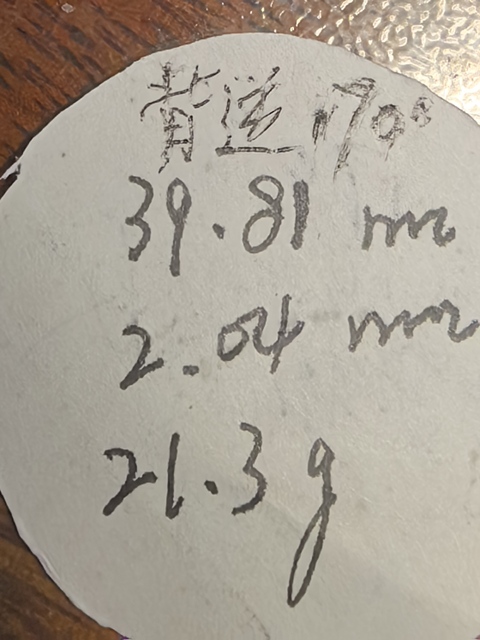 背逆190°
39.81 mm
2.04 mm
21.3g